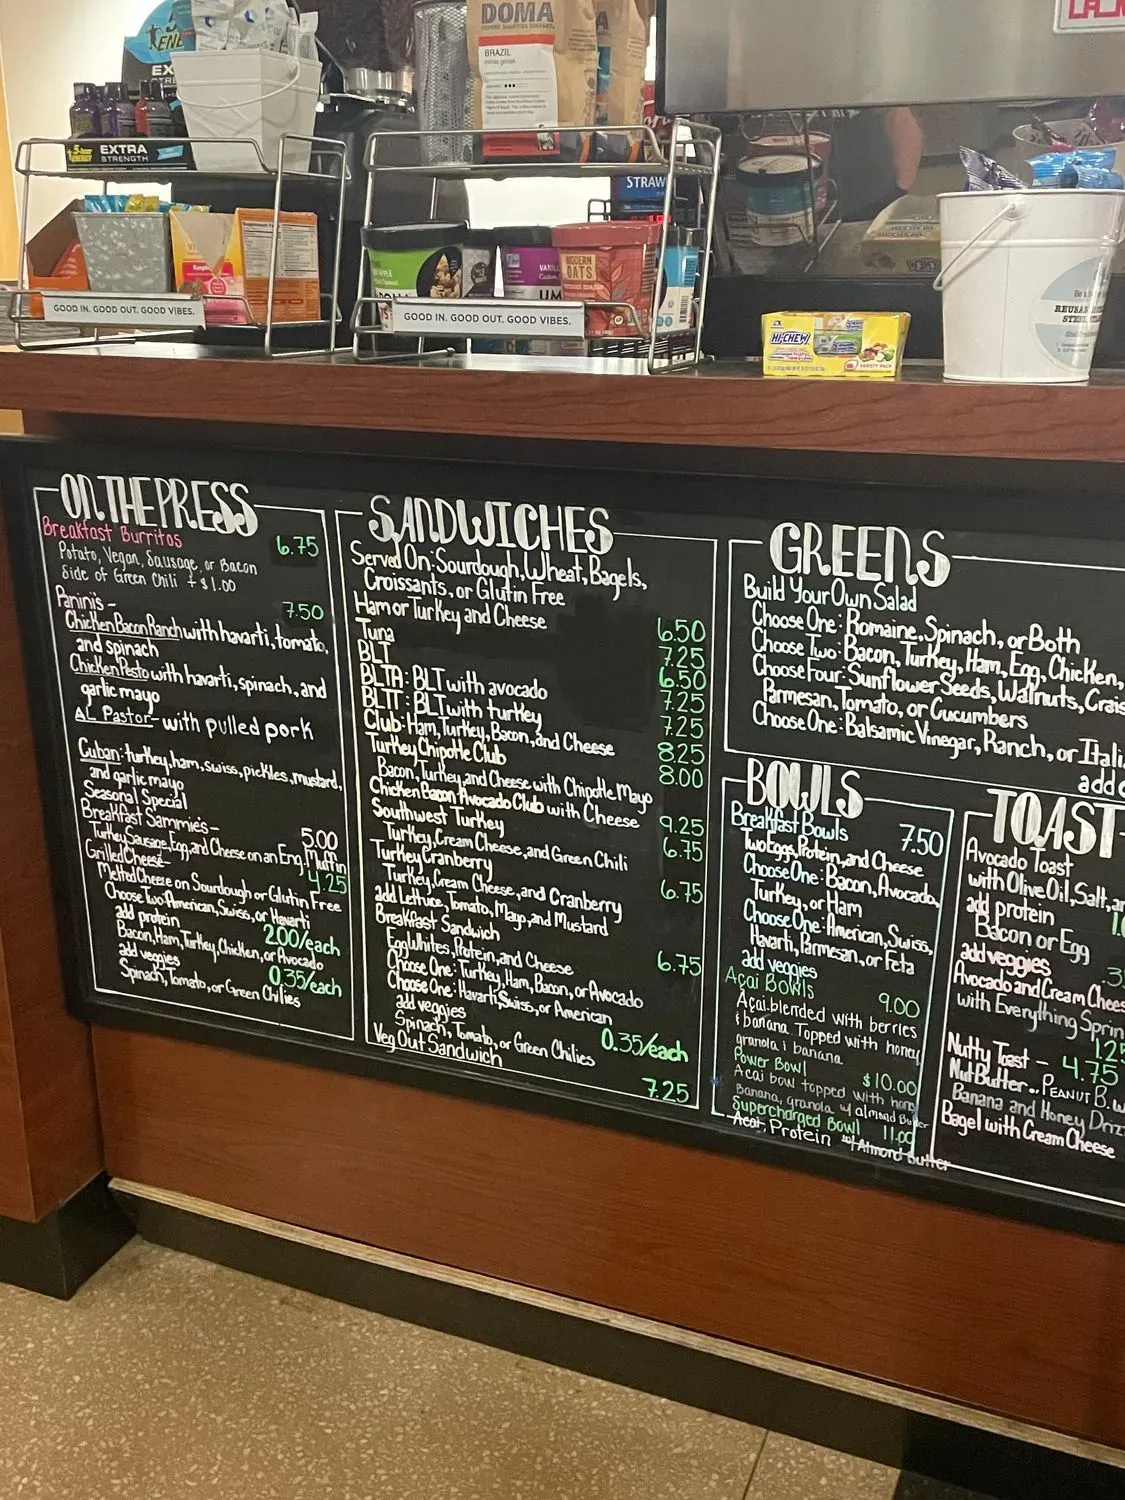 DOMA
BRAZIL
EXTRA
STRENGTH
STRAW
MODERN
OATS
GOOD IN. GOOD OUT. GOOD VIBES.
GOOD IN. GOOD OUT. GOOD VIBES.
HI-CHEW
VARIETY PACK
ON THE PRESS
Breakfast Burritos 6.75
Potato, Vegan, Sausage, or Bacon
Side of Green Chili + $1.00
Panini's - 7.50
Chicken Bacon Ranch with havarti, tomato,
and spinach
Chicken Pesto with havarti, spinach, and
garlic mayo
AL Pastor - with pulled pork
Cuban: turkey, ham, swiss, pickles, mustard,
and garlic mayo
Seasonal Special
Breakfast Sammies - 5.00
Turkey Sausage, Egg, and Cheese on an Eng. Muffin
Grilled Cheese - 4.25
Melted Cheese on Sourdough or Glutin Free
Choose Two: American, Swiss, or Havarti
add protein 2.00/each
Bacon, Ham, Turkey, Chicken, or Avocado
add veggies 0.35/each
Spinach, Tomato, or Green Chilies
SANDWICHES
Served On: Sourdough, Wheat, Bagels,
Croissants, or Glutin Free
Ham or Turkey and Cheese 6.50
Tuna 7.25
BLT 6.50
BLTA: BLT with avocado 7.25
BLTT: BLT with turkey 7.25
Club: Ham, Turkey, Bacon, and Cheese 8.25
Turkey Chipotle Club 8.00
Bacon, Turkey, and Cheese with Chipotle Mayo
Chicken Bacon Avocado Club with Cheese 9.25
Southwest Turkey 6.75
Turkey, Cream Cheese, and Green Chili
Turkey Cranberry 6.75
Turkey, Cream Cheese, and Cranberry
add Lettuce, Tomato, Mayo, and Mustard
Breakfast Sandwich 6.75
Egg Whites, Protein, and Cheese
Choose One: Turkey, Ham, Bacon, or Avocado
Choose One: Havarti, Swiss, or American
add veggies 0.35/each
Spinach, Tomato, or Green Chilies
Veg Out Sandwich 7.25
GREENS
Build Your Own Salad
Choose One: Romaine, Spinach, or Both
Choose Two: Bacon, Turkey, Ham, Egg, Chicken,
Choose Four: Sunflower Seeds, Walnuts, Crais
Parmesan, Tomato, or Cucumbers
Choose One: Balsamic Vinegar, Ranch, or Itali
add
BOWLS
Breakfast Bowls 7.50
Two Eggs, Protein, and Cheese
Choose One: Bacon, Avocado,
Turkey, or Ham
Choose One: American, Swiss,
Havarti, Parmesan, or Feta
add veggies
Açai Bowls 9.00
Açai blended with berries
& banana. Topped with honey,
granola & banana
Power Bowl $10.00
Acai bow topped with hon
Banana, granola w/ almond Butter
Supercharged Bowl 11.00
Acai, Protein w/ Almond Butter
TOAST
Avocado Toast
with Olive Oil, Salt, an
add protein
Bacon or Egg
add veggies
Avocado and Cream Chees
with Everything Sprin
Nutty Toast - 4.75
Nut Butter.. Peanut B. w
Banana and Honey Driz
Bagel with Cream Cheese